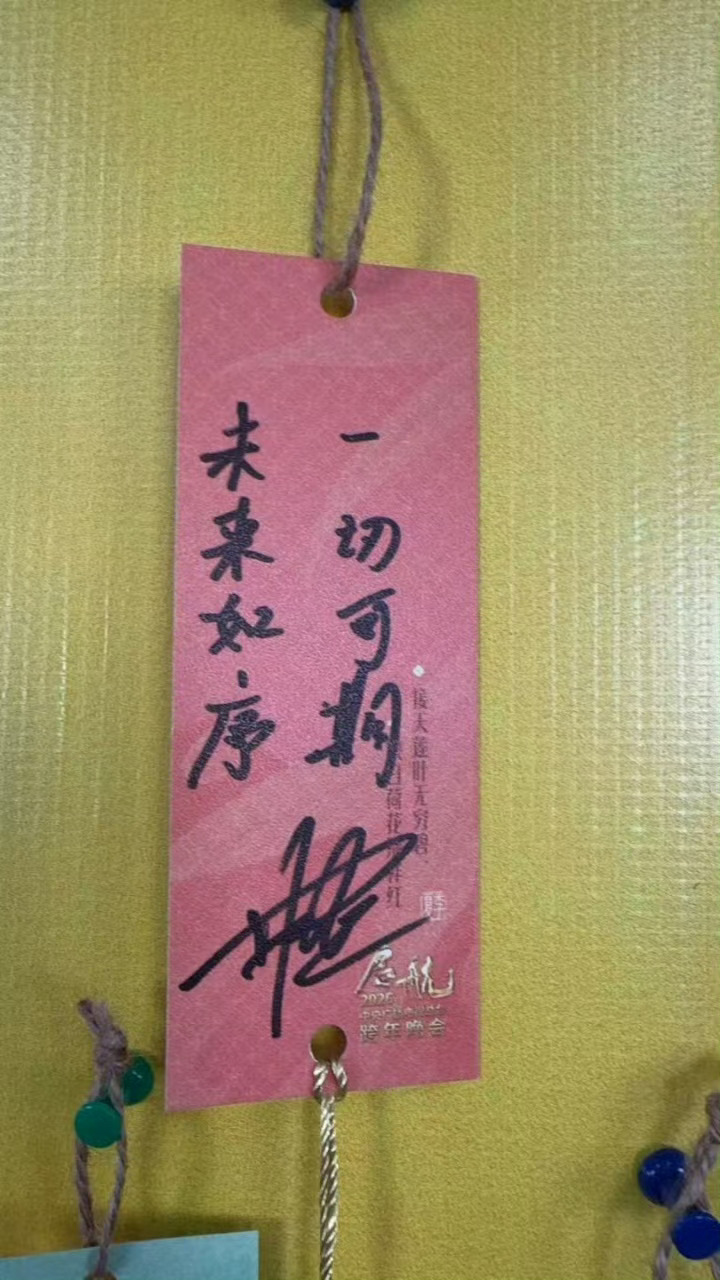 一切可期
未来如序
接天莲叶无穷碧
荷花
红
启航
2026
跨年晚会